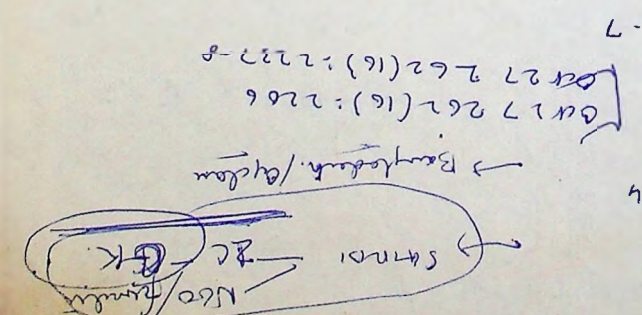 NGO / families
2C - G.K.
→ Bangladesh / Cyclone
Oct 27 262 (16): 2206
Oct 27 262 (16): 2227-8